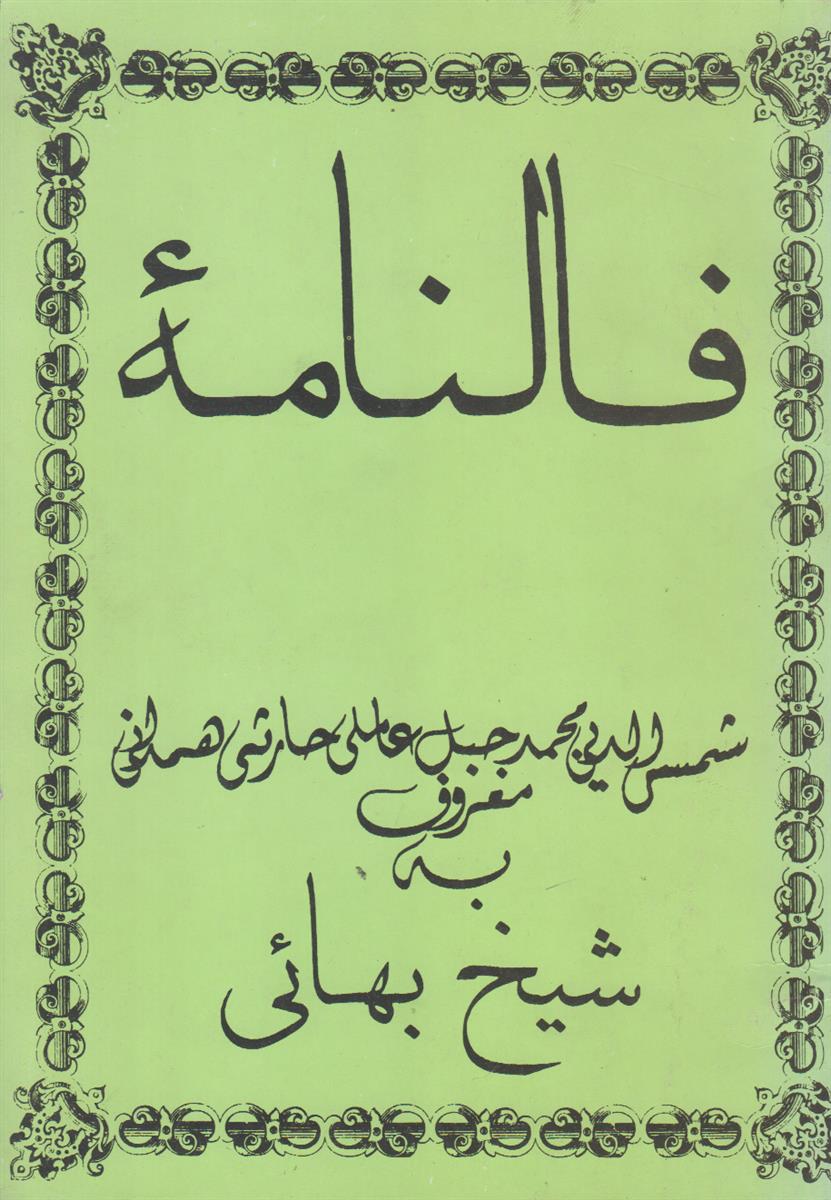 فالنامهٔ
شمس الدین محمد جبل عاملی حارثی همدانی
معروف
به
شیخ بهائی